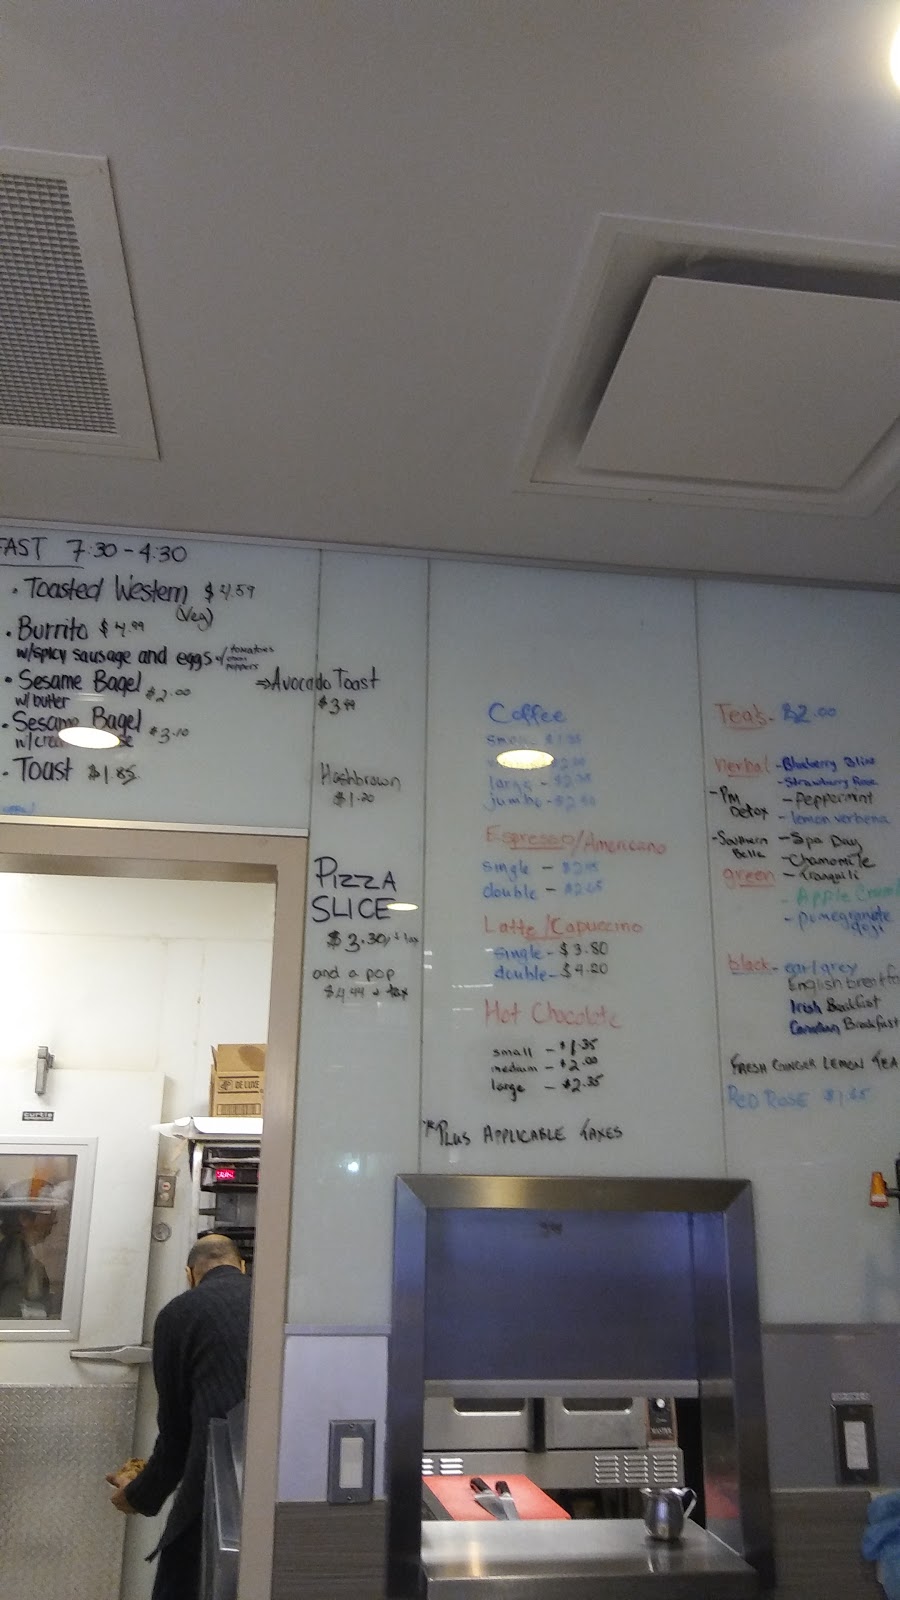 FAST 7:30-4:30
• Toasted Western $4.59
(Veg)
• Burrito $4.99
w/spicy sausage and eggs w/ tomatoes
peppers
• Sesame Bagel $2.00
w/ butter
• Sesame Bagel $3.10
• Toast $1.85
⇒ Avocado Toast
$3.99
Hashbrown
$1.20
PIZZA
SLICE
$3.30 + tax
and a pop
$4.44 + tax
Coffee
large - 
jumbo - 
Espresso/Americano
single - 
double - $2.65
Latte/Capuccino
single - $3.80
double - $4.20
Hot Chocolate
small - $1.35
medium - $2.00
large - $2.35
*PLUS APPLICABLE TAXES
Tea's - $2.00
herbal - Blueberry Bliss
- Strawberry Rose
- PM Detox
- Peppermint
- lemon verbena
- Southern Belle
- Spa Day
- Chamomile
green - Tranquili
- Apple Crum
- pomegranate goji
black - earl grey
English breakfa
Irish Breakfast
Canadian Breakfast
FRESH GINGER LEMON TEA
RED ROSE $1.65
DE LUXE